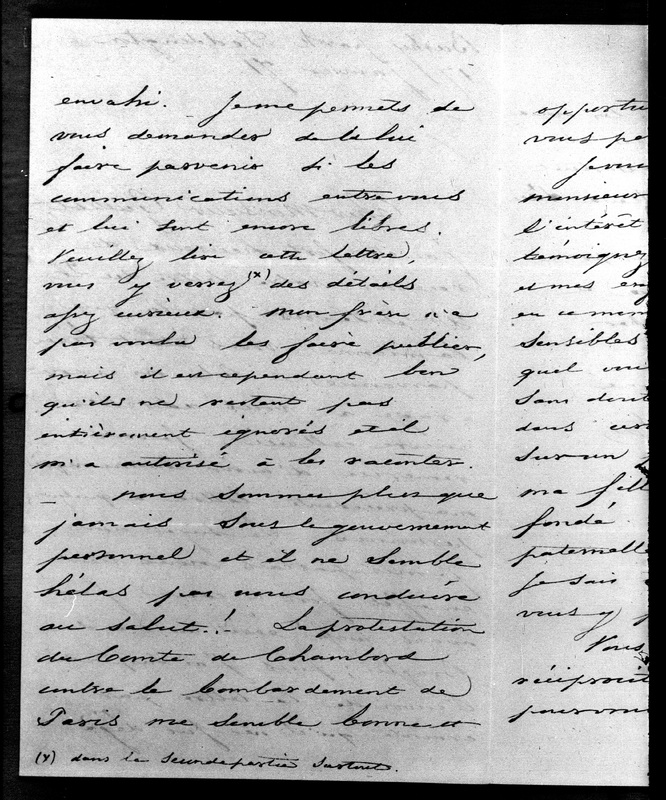 envahi. Je me permets de
vous demander de la lui
faire parvenir si les
communications entre vous
et lui sont encore libres.
Veuillez lire cette lettre,
vous y verrez (x) des détails
assez curieux. mon frère n'a
pas voulu les faire publier,
mais il est cependant bon
qu'ils ne restent pas
entièrement ignorés et il
m'a autorisé à les raconter.
nous sommes plus que
jamais sous le gouvernement
personnel et il ne semble
hélas pas nous conduire
au salut.! La protestation
du Comte de Chambord
contre le bombardement de
Paris me semble bonne et
(x) dans la seconde partie surtout.
opportu
vous pa
Je vous
monsieur
l'intérêt
témoignez
et mes en
en ce mom
sensibles
quel
sans dout
dans
sur un
ma fill
fondé
paternelle
je sais
vous y
Vous
réciproci
pour vous